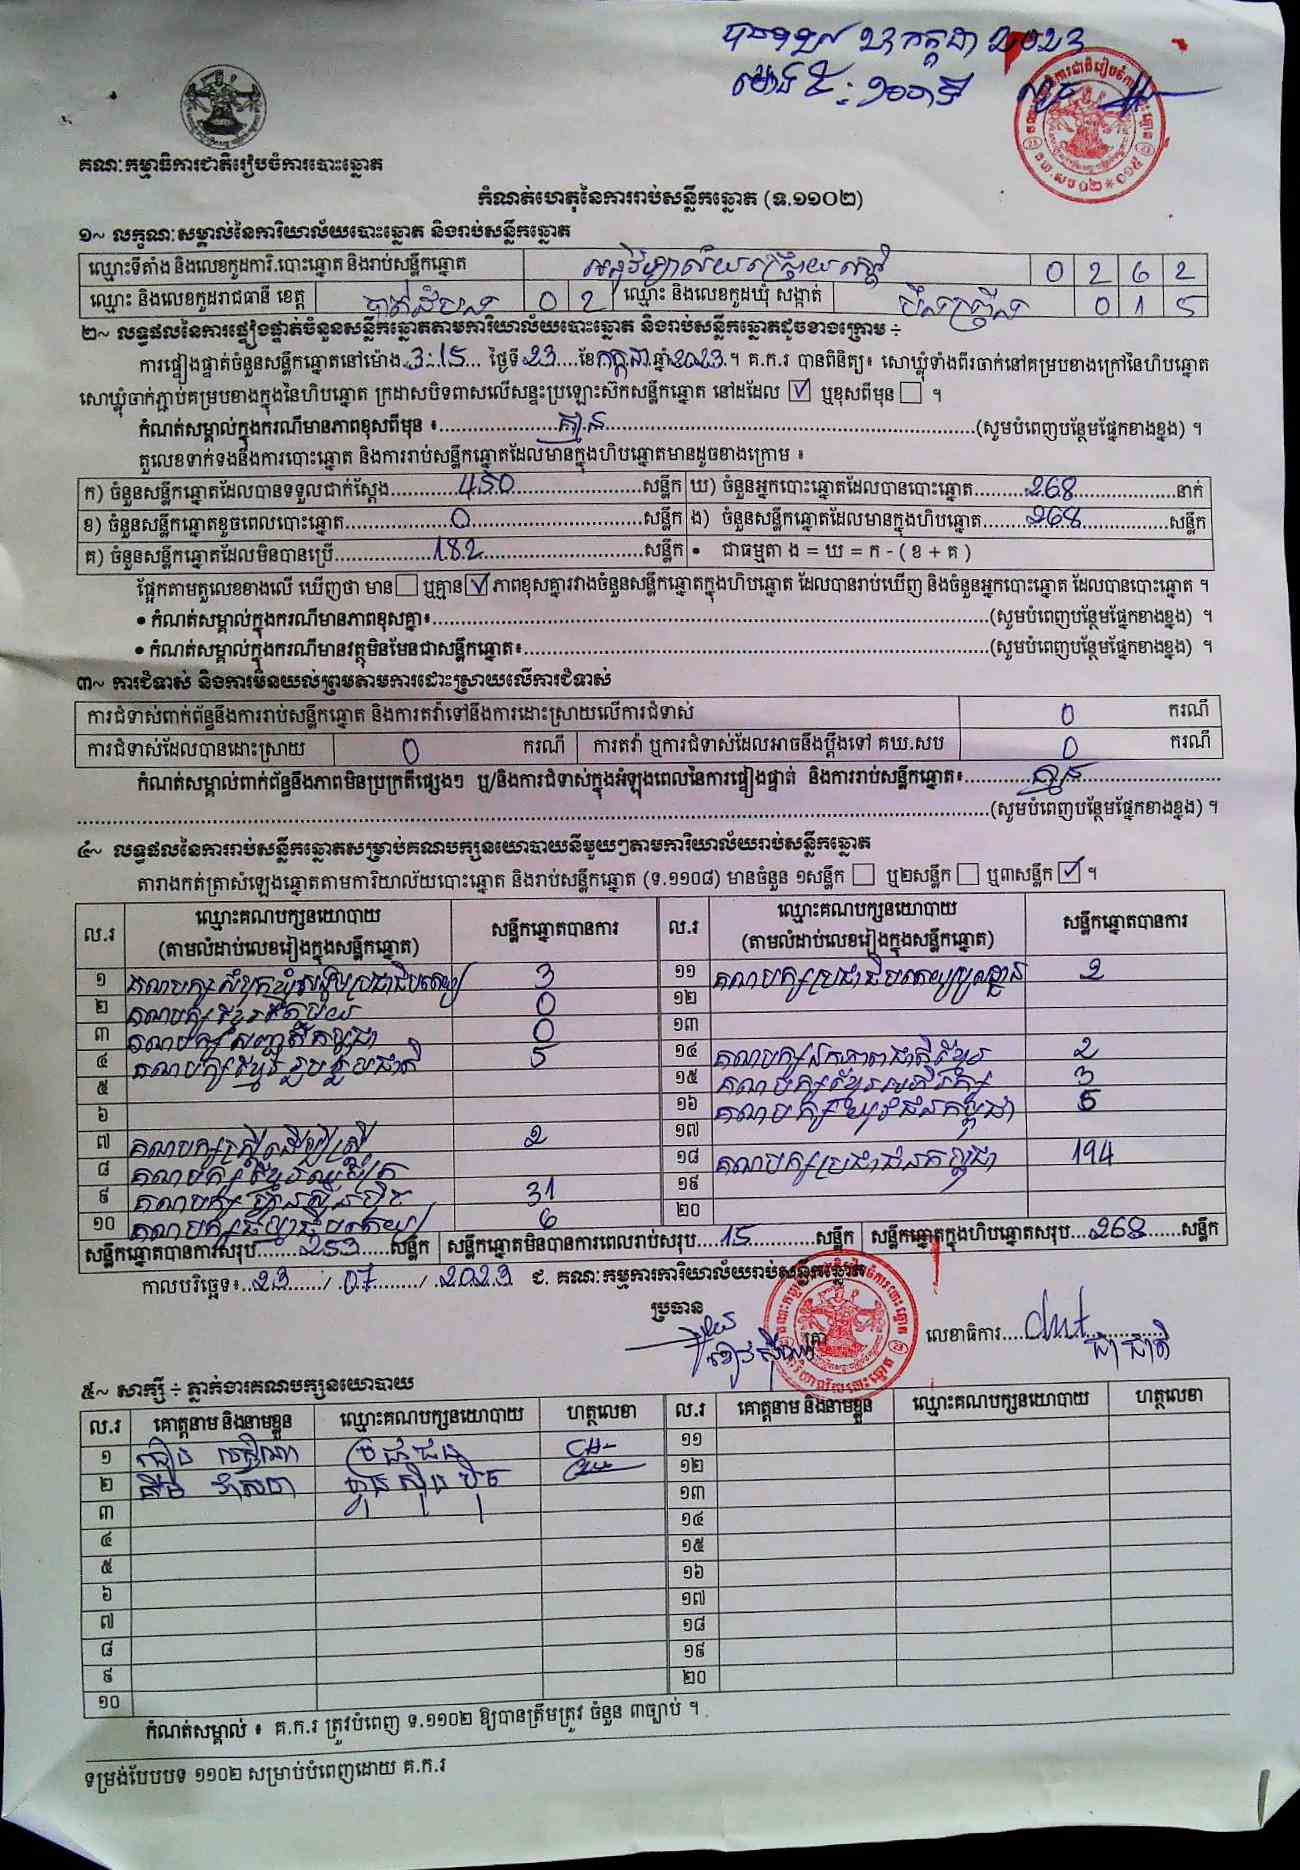 ២៣ កក្កដា 2023
ម៉ោង ៥:១០នាទី
គណៈកម្មាធិការជាតិរៀបចំការបោះឆ្នោត
កំណត់ហេតុនៃការរាប់សន្លឹកឆ្នោត (ទ.១១០២)
១~ លក្ខណៈសម្គាល់នៃការិយាល័យបោះឆ្នោត និងរាប់សន្លឹកឆ្នោត
ឈ្មោះទីតាំង និងលេខកូដការិ.បោះឆ្នោត និងរាប់សន្លឹកឆ្នោត 0 2 6 2
ឈ្មោះ និងលេខកូដរាជធានី ខេត្ត បាត់ដំបង 0 2 ឈ្មោះ និងលេខកូដឃុំ សង្កាត់ 0 1 5
២~ លទ្ធផលនៃការផ្ទៀងផ្ទាត់ចំនួនសន្លឹកឆ្នោតតាមការិយាល័យបោះឆ្នោត និងរាប់សន្លឹកឆ្នោតដូចខាងក្រោម ÷
ការផ្ទៀងផ្ទាត់ចំនួនសន្លឹកឆ្នោតនៅម៉ោង 3:15 ថ្ងៃទី 23 ខែ កក្កដា ឆ្នាំ 2023 ។ គ.ក.រ បានពិនិត្យ៖ សោឃ្លុំទាំងពីរចាក់នៅគម្របខាងក្រៅនៃហិបឆ្នោត
សោឃ្លុំចាក់ភ្ជាប់គម្របខាងក្នុងនៃហិបឆ្នោត ក្រដាសបិទពាសលើសន្ទះប្រឡោះស៊កសន្លឹកឆ្នោត នៅដដែល ☑ ឬខុសពីមុន ☐ ។
កំណត់សម្គាល់ក្នុងករណីមានភាពខុសពីមុន ៖ គ្មាន (សូមបំពេញបន្ថែមផ្នែកខាងខ្នង) ។
តួលេខទាក់ទងនឹងការបោះឆ្នោត និងការរាប់សន្លឹកឆ្នោតដែលមានក្នុងហិបឆ្នោតមានដូចខាងក្រោម ៖
ក) ចំនួនសន្លឹកឆ្នោតដែលបានទទួលជាក់ស្តែង 450 សន្លឹក ឃ) ចំនួនអ្នកបោះឆ្នោតដែលបានបោះឆ្នោត 268 នាក់
ខ) ចំនួនសន្លឹកឆ្នោតខូចពេលបោះឆ្នោត 0 សន្លឹក ង) ចំនួនសន្លឹកឆ្នោតដែលមានក្នុងហិបឆ្នោត 268 សន្លឹក
គ) ចំនួនសន្លឹកឆ្នោតដែលមិនបានប្រើ 182 សន្លឹក • ជាធម្មតា ង = ឃ = ក - ( ខ + គ )
ផ្អែកតាមតួលេខខាងលើ ឃើញថា មាន ☐ ឬគ្មាន ☑ ភាពខុសគ្នារវាងចំនួនសន្លឹកឆ្នោតក្នុងហិបឆ្នោត ដែលបានរាប់ឃើញ និងចំនួនអ្នកបោះឆ្នោត ដែលបានបោះឆ្នោត ។
• កំណត់សម្គាល់ក្នុងករណីមានភាពខុសគ្នា៖ (សូមបំពេញបន្ថែមផ្នែកខាងខ្នង) ។
• កំណត់សម្គាល់ក្នុងករណីមានវត្ថុមិនមែនជាសន្លឹកឆ្នោត៖ (សូមបំពេញបន្ថែមផ្នែកខាងខ្នង) ។
៣~ ការជំទាស់ និងការមិនយល់ព្រមតាមការដោះស្រាយលើការជំទាស់
ការជំទាស់ពាក់ព័ន្ធនឹងការរាប់សន្លឹកឆ្នោត និងការតវ៉ាទៅនឹងការដោះស្រាយលើការជំទាស់ 0 ករណី
ការជំទាស់ដែលបានដោះស្រាយ 0 ករណី ការតវ៉ា ឬការជំទាស់ដែលអាចនឹងប្តឹងទៅ គឃ.សប 0 ករណី
កំណត់សម្គាល់ពាក់ព័ន្ធនឹងភាពមិនប្រក្រតីផ្សេងៗ ឬ/និងការជំទាស់ក្នុងអំឡុងពេលនៃការផ្ទៀងផ្ទាត់ និងការរាប់សន្លឹកឆ្នោត៖ គ្មាន
(សូមបំពេញបន្ថែមផ្នែកខាងខ្នង) ។
៤~ លទ្ធផលនៃការរាប់សន្លឹកឆ្នោតសម្រាប់គណបក្សនយោបាយនីមួយៗតាមការិយាល័យរាប់សន្លឹកឆ្នោត
តារាងកត់ត្រាសំឡេងឆ្នោតតាមការិយាល័យបោះឆ្នោត និងរាប់សន្លឹកឆ្នោត (ទ.១១០៨) មានចំនួន ១សន្លឹក ☐ ឬ២សន្លឹក ☐ ឬ៣សន្លឹក ☑ ។
ល.រ ឈ្មោះគណបក្សនយោបាយ (តាមលំដាប់លេខរៀងក្នុងសន្លឹកឆ្នោត) សន្លឹកឆ្នោតបានការ ល.រ ឈ្មោះគណបក្សនយោបាយ (តាមលំដាប់លេខរៀងក្នុងសន្លឹកឆ្នោត) សន្លឹកឆ្នោតបានការ
១ គណបក្សសំបុកឃ្មុំសង្គមប្រជាធិបតេយ្យ 3 ១១ គណបក្សប្រជាធិបតេយ្យមូលដ្ឋាន 2
២ គណបក្ស 0 ១២
៣ គណបក្ស កម្ពុជា 0 ១៣
៤ គណបក្សខ្មែររួបរួមជាតិ 5 ១៤ គណបក្សឯកភាពជាតិខ្មែរ 2
៥ ១៥ គណបក្សខ្មែរអភិរក្ស 3
៦ ១៦ គណបក្សយុវជនកម្ពុជា 5
៧ គណបក្សស្ត្រីដើម្បីស្ត្រី 2 ១៧
៨ គណបក្ស ១៨ គណបក្សប្រជាជនកម្ពុជា 194
៩ គណបក្សហ៊្វុនស៊ិនប៉ិច 31 ១៩
១០ គណបក្សធម្មាធិបតេយ្យ 6 ២០
សន្លឹកឆ្នោតបានការសរុប 253 សន្លឹក សន្លឹកឆ្នោតមិនបានការពេលរាប់សរុប 15 សន្លឹក សន្លឹកឆ្នោតក្នុងហិបឆ្នោតសរុប 268 សន្លឹក
កាលបរិច្ឆេទ៖ 23 / 07 / 2023 ជ. គណៈកម្មការការិយាល័យរាប់សន្លឹកឆ្នោត
ប្រធាន
លេខាធិការ
៥~ សាក្សី ÷ ភ្នាក់ងារគណបក្សនយោបាយ
ល.រ គោត្តនាម និងនាមខ្លួន ឈ្មោះគណបក្សនយោបាយ ហត្ថលេខា ល.រ គោត្តនាម និងនាមខ្លួន ឈ្មោះគណបក្សនយោបាយ ហត្ថលេខា
១ ប្រជាជន ១១
២ ហ៊្វុនស៊ិនប៉ិច ១២
៣ ១៣
៤ ១៤
៥ ១៥
៦ ១៦
៧ ១៧
៨ ១៨
៩ ១៩
១០ ២០
កំណត់សម្គាល់ ៖ គ.ក.រ ត្រូវបំពេញ ទ.១១០២ ឱ្យបានត្រឹមត្រូវ ចំនួន ៣ច្បាប់ ។
ទម្រង់បែបបទ ១១០២ សម្រាប់បំពេញដោយ គ.ក.រ